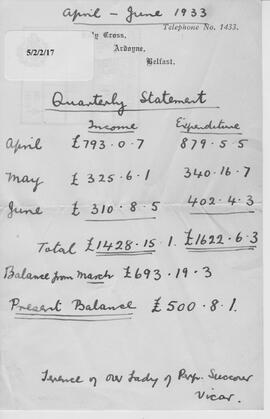 April - June 1933
Cross,
Telephone No. 1433.
5/2/2/17
Ardoyne,
Belfast.
Quarterly Statement
Income Expenditure
April £793.0.7 879.5.5
May £325.6.1 340.16.7
June £310.8.5 402.4.3
Total £1428.15.1. £1622.6.3
Balance from March £693.19.3
Present Balance £500.8.1.
Terence of Our Lady of Perp. Succour
Vicar.